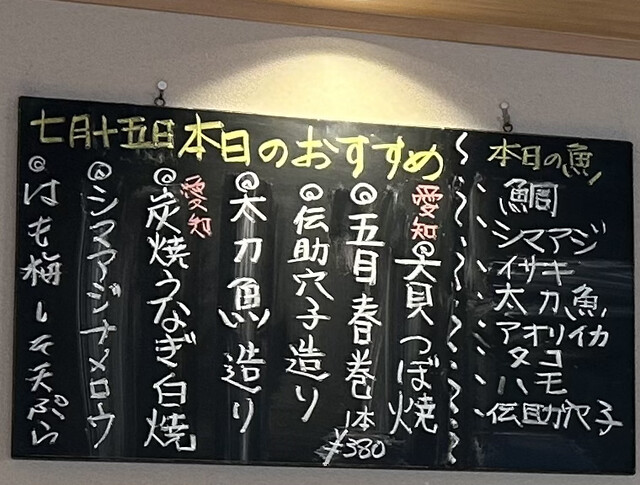 七月十五日 本日のおすすめ
愛知
◎大貝つぼ焼
◎五目春巻 1本 ¥380
◎伝助穴子造り
◎太刀魚造り
愛知
◎炭焼うなぎ白焼
◎シマアジナメロウ
◎はも梅しそ天ぷら
本日の魚
鯛
シマアジ
イサキ
太刀魚
アオリイカ
タコ
ハモ
伝助穴子